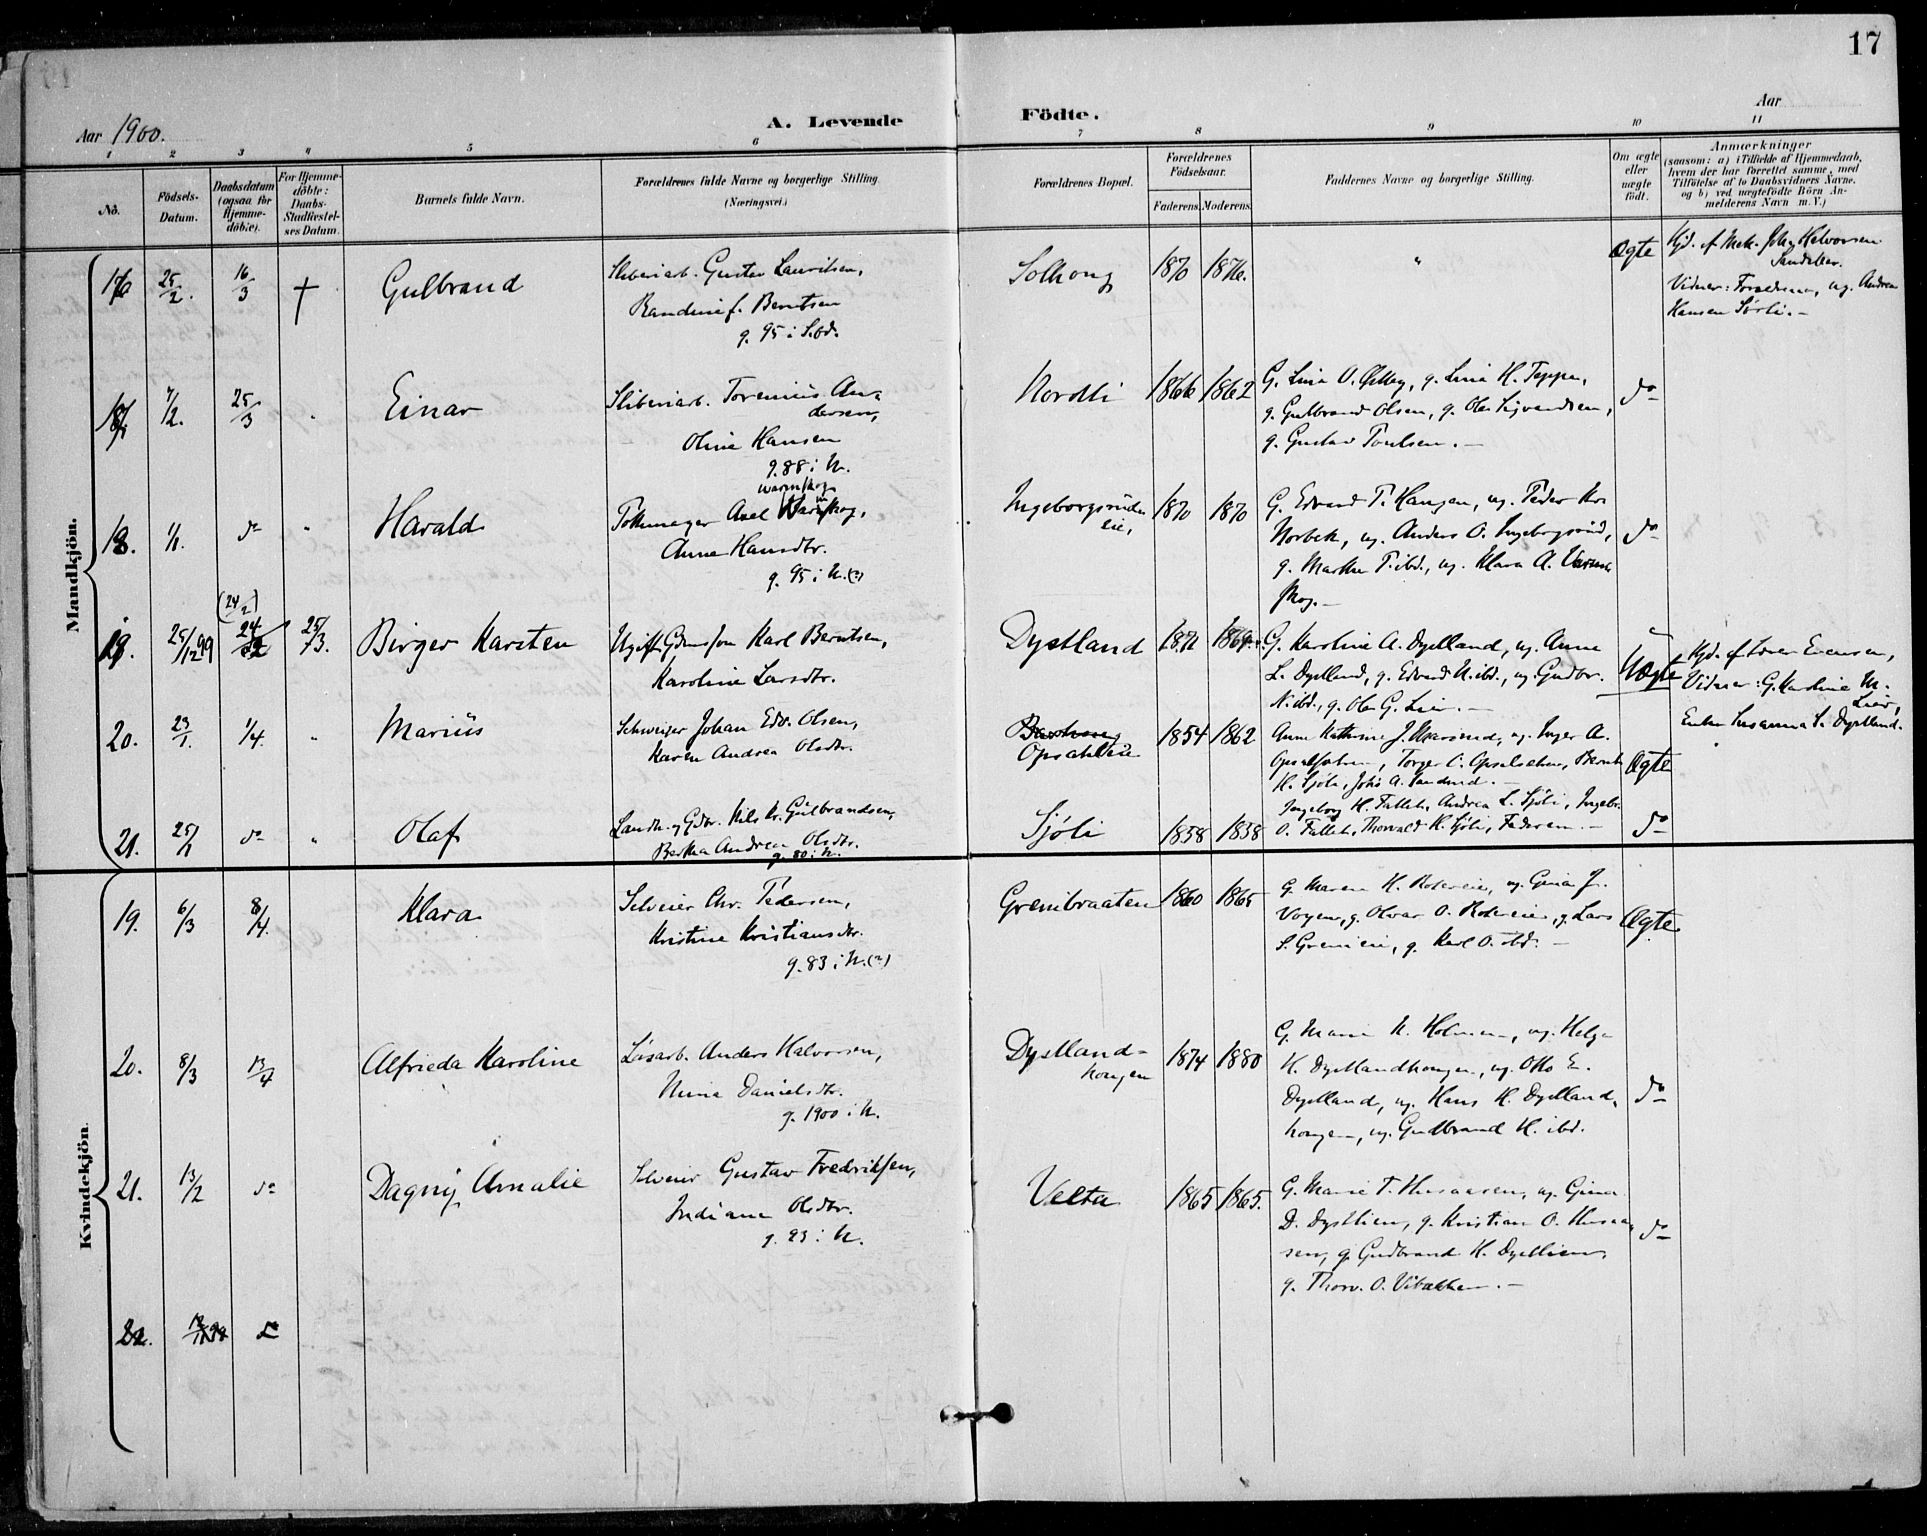 17
Aar 1900.
A. Levende
Födte.
Aar
1 2 3 4 5 6 7 8 9 10 11
No.
Födsels-
Datum.
Daabsdatum
(ogsaa for
Hjemme-
döbte).
For Hjemme-
döbte:
Daabs-
Stadfæstel-
ses Datum.
Barnets fulde Navn.
Forældrenes fulde Navne og borgerlige Stilling.
(Næringsvei.)
Forældrenes Bopæl.
Forældrenes
Födselsaar.
Faderens. Moderens.
Faddernes Navne og borgerlige Stilling.
Om ægte
eller
uægte
födt.
Anmærkninger
(saasom: a) i Tilfælde af Hjemmedaab,
hvem der har forrettet samme, med
Tilföielse af to Daabsvidners Navne,
og b) ved uægtefödte Börn An-
melderens Navn m. V.)
Mandkjön.
16 25/2. 16/3 † Gulbrand
Sliberiarb. Gustav Lauritsen,
Randine f. Berntsen
g. 95 i S.bd.
Solhoug 1870 1876. " Ægte
Hjd. af Mek. Johs Halvorsen
Sandaker.
Vidner: Forældrene, ug. Andrea
Hansen Sørli. –
17 7/2. 25/3 " Einar
Sliberiarb. Torenius An-
dersen,
Oline Hansen
g. 88 i N.
Nordli 1866 1862
G. Lina O. Østby, g. Lina H. Teppen,
g. Gulbrand Olsen, g. Ole Sigvardsen,
g. Gustav Poulsen. –
do
18. 1/1. do " Harald
Axel Warnskog,
Anne Hansdtr.
g. 95 i N. (?)
Ingeborgsruds-
eie, 1870 1870
G. Edvard T. Haugen, ug. Peder Kr.
Norbek, ug. Anders O. Ingeborgsrud,
g. Marthe P. ibd., ug. Klara A. Varns-
skog. –
do
19. 25/12 99 (24/2) 25/3. Birger Karsten
Ugift Gdmssøn Karl Berntsen,
Karoline Larsdtr.
Dystland 1871 1869.
G. Karoline A. Dystland, ug. Anne
L. Dystland, g. Edvard N. ibd., ug. Gudbr.
N. ibd., g. Ole G. Lier. –
Uægte
Hjd. af Lover Evensen,
Vidner: G. Karoline M.
Lier,
Enke Susanna L. Dystland.
20. 23/1. 1/4. " Marius
Schweizer Johan Edv. Olsen,
Karen Andrea Olsdtr.
Opsahleie 1854 1862
Anne Kathrine J. ug. Inger A.
Torger O. Bernt
H. Sjöli, Johs A. –
Ægte
21. 25/1 do " Olaf
Landh. og Gdbr. Nils Kr. Gulbrandsen,
Berthea Andrea Olsdtr.
g. 80 i N.
Sjöli 1858 1858
Ingeborg H. Fallet, Andrea L. Sjöli, Ingebr.
O. Fallet, Thorvald H. Sjöli, Faderen. –
do
Kvindekjön.
19. 6/3 8/4. Klara
Selveier Chr. Pedersen,
Kristine Kristiansdtr.
g. 83 i N. (?)
Grenibraaten 1860 1865
G. Maren H. ug. Gina J.
g. Olvar O. g. Lars
S. Grenieie, g. Karl O. ibd. –
Ægte
20. 8/3 13/4 Alfrieda Karoline
Løsarb. Anders Halvorsen,
Nina Danielsdtr.
g. 1900 i N.
Dystland-
haugen 1874 1880
G. Marie N. Holmen, ug. Helga
H. Dystlandhaugen, ug. Otto E.
Dystland, ug. Hans H. Dystland-
haugen, ug. Gudbrand H. ibd.
do
21. 13/2 do Dagny Amalie
Selveier Gustav Fredriksen,
Indiane Olsdtr.
g. 93 i N.
Velta 1865 1865.
G. Marie T. Husaasen, ug. Gina
D. Dystlien, g. Kristian O. Husaa-
sen, g. Gudbrand H. Dystlien,
g. Thorv. O. –
do
22. do